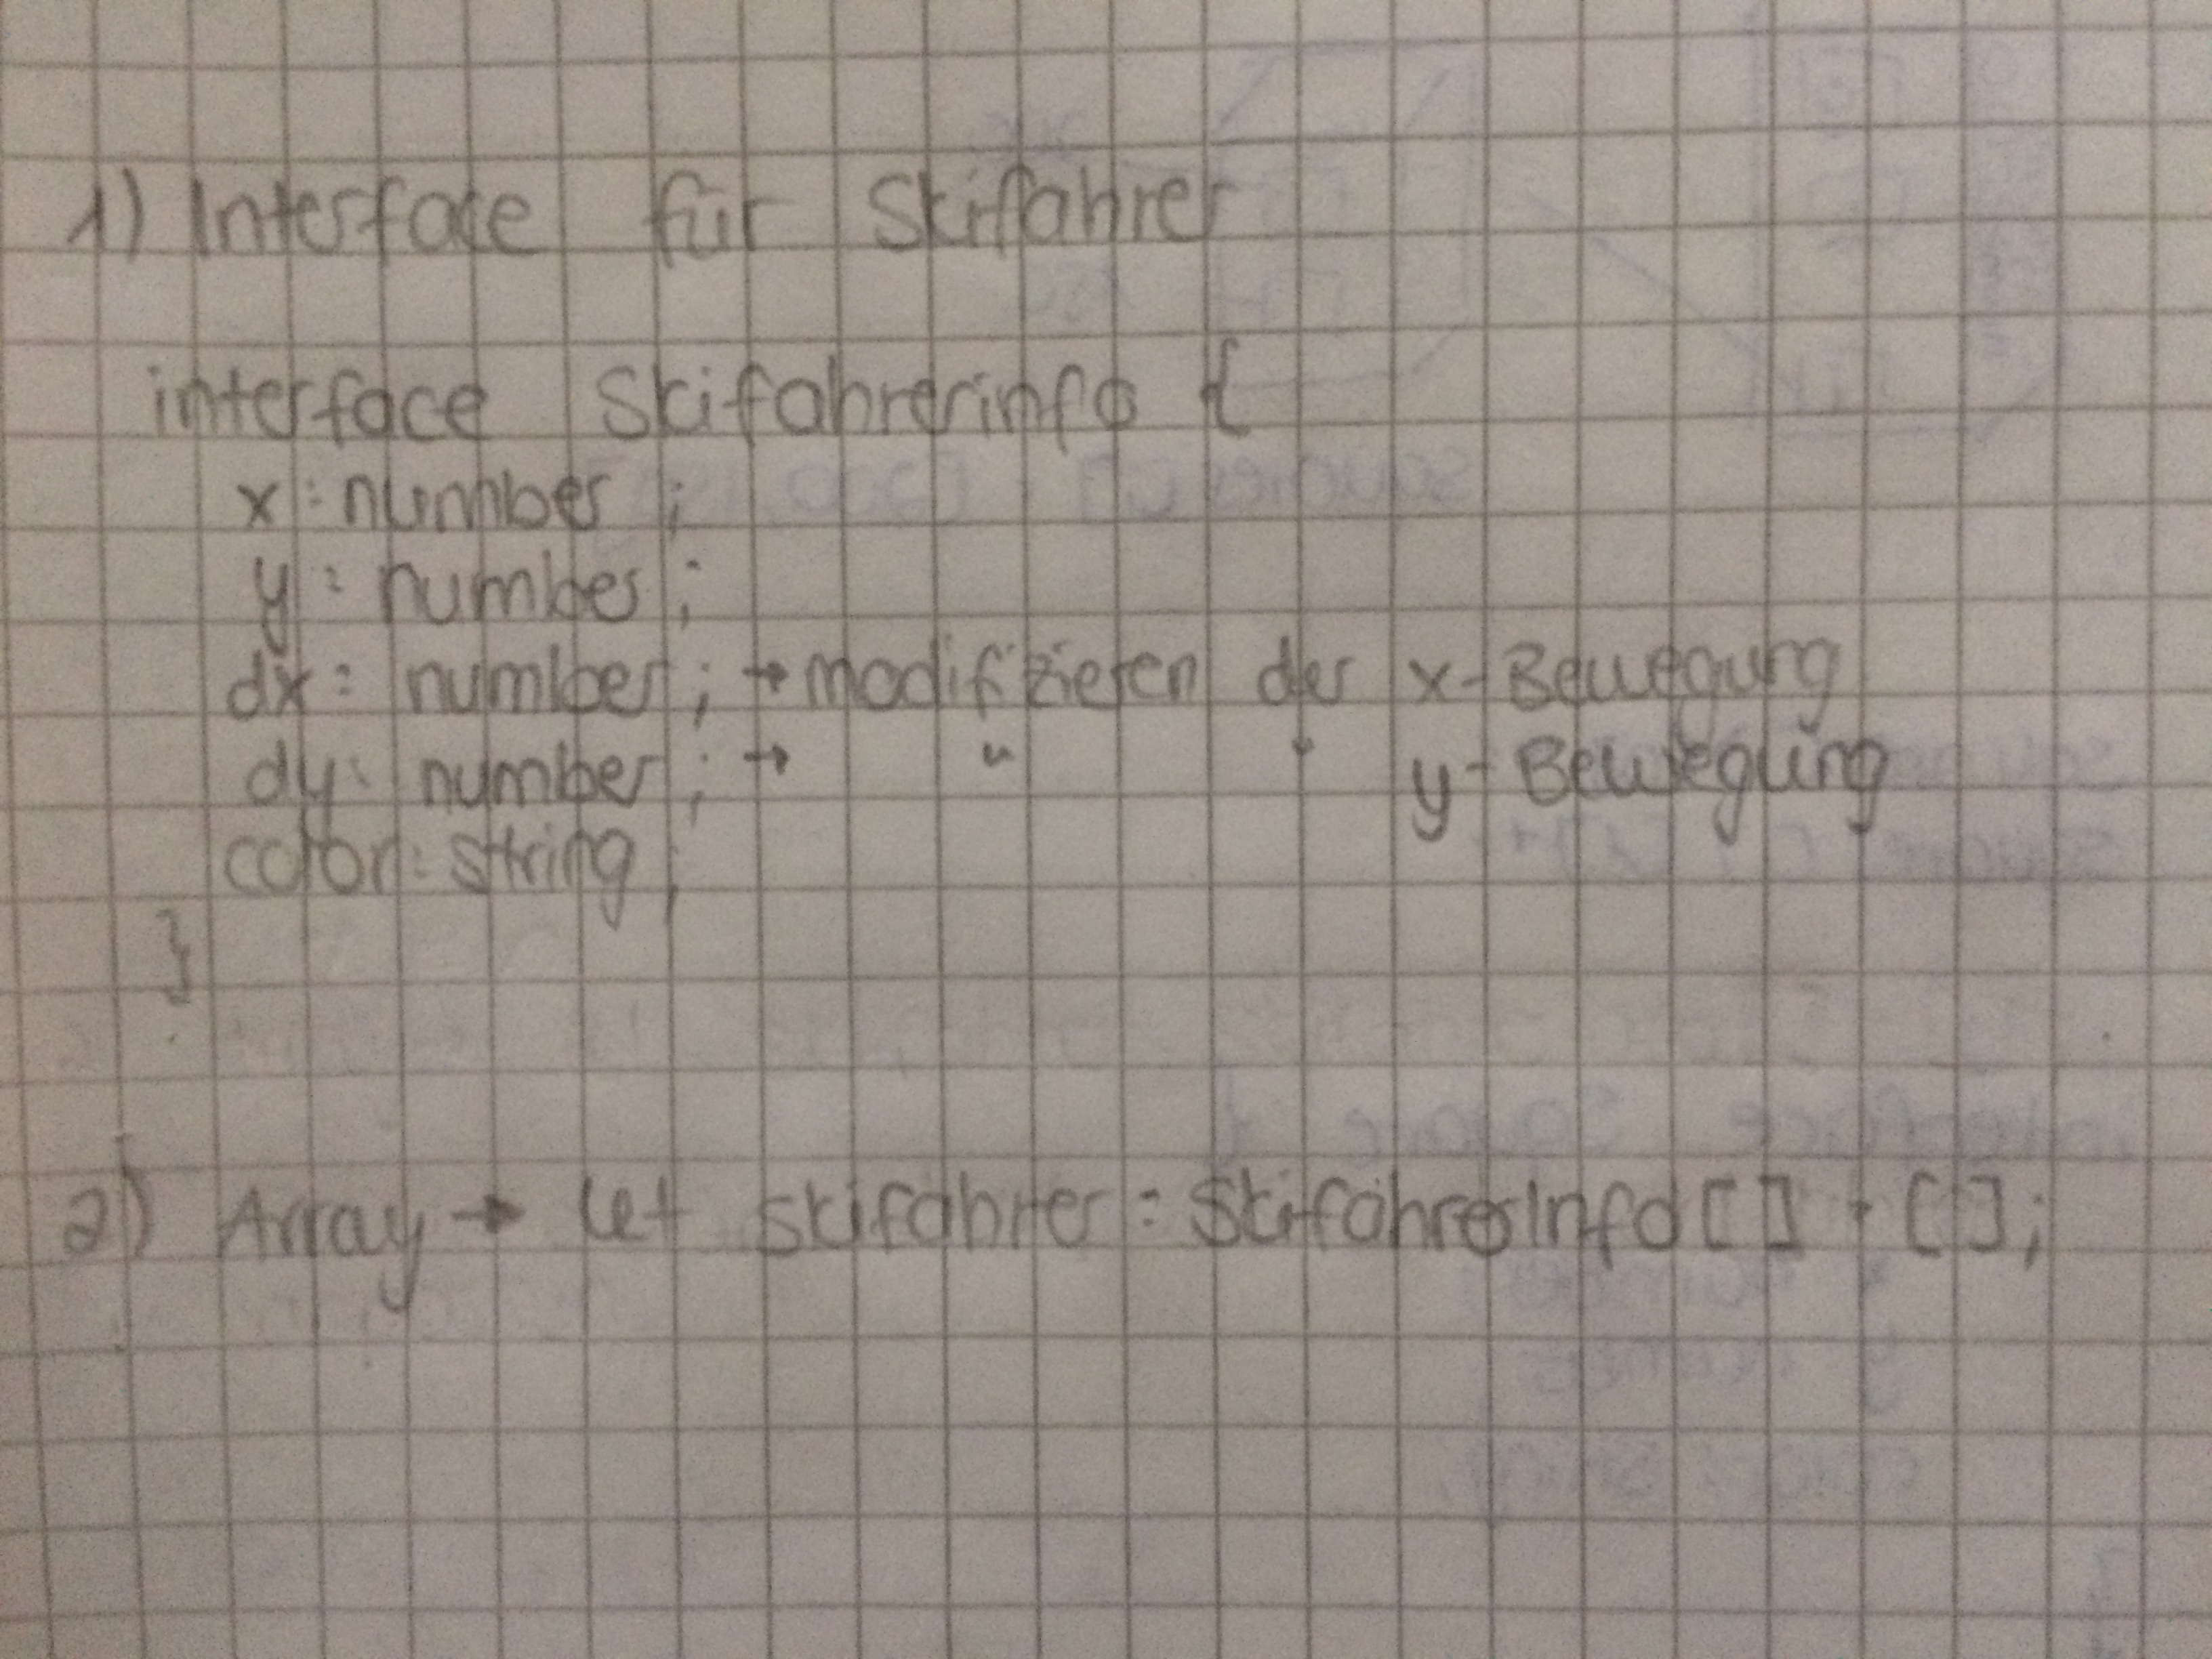 1) Interface für Skifahrer
interface Skifahrerinfo {
x: number ;
y: number ;
dx: number ; → modifizieren der x-Bewegung
dy: number ; → " " y-Bewegung
color: string ;
}
2) Array → let skifahrer : SkifahrerInfo [] = [];